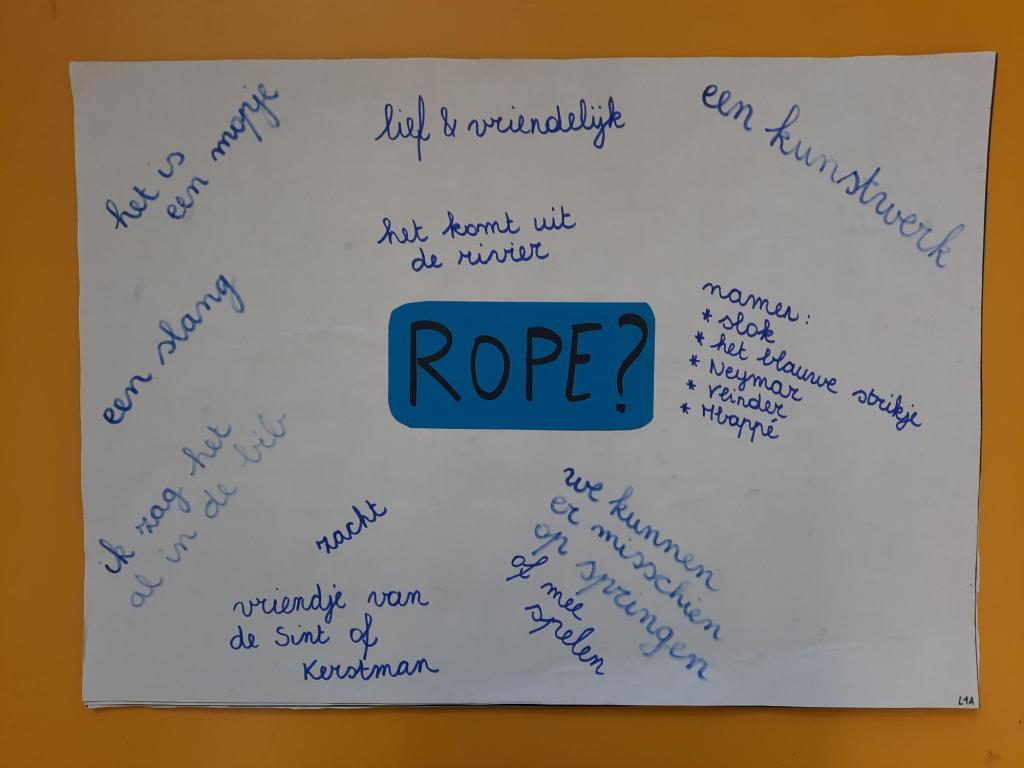 het is
een mopje
lief & vriendelijk
een kunstwerk
het komt uit
de rivier
een slang
ROPE?
namen:
* slok
* het blauwe strikje
* Neymar
* reinder
* Mbappé
ik zag het
al in de bib
zacht
we kunnen
er misschien
op springen
of mee
spelen
vriendje van
de Sint of
Kerstman
L1A